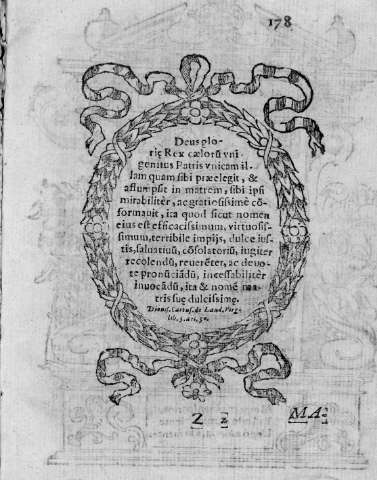 178
Deus glo-
rię Rex cælorũ vni-
genitus Patris vnicam il-
lam quam sibi præelegit, &
assumpsit in matrem, sibi ipsi
mirabilitèr, ac gratiosissimè cõ-
formauit, ita quod sicut nomen
eius est efficacissimum, virtuosis-
simum, terribile impijs, dulce ius-
tis, saluatiuũ, cõsolatoriũ, iugiter
recolendũ, reuerẽter, ac deuo-
te pronũciãdũ, incessabilitèr
inuocãdũ, ita & nomẽ ma-
tris suę dulcissimę.
Dionis. Cartus. de Laud. Virg.
lib. 3. art. 5.
Z z MA: